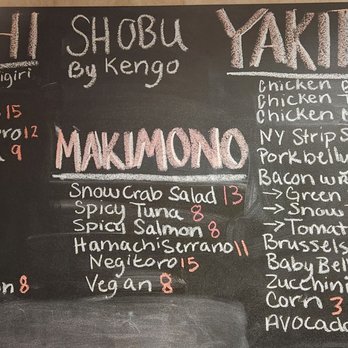 HI
SHOBU
By Kengo
igiri
15
ro 12
9
on 8
MAKIMONO
Snow Crab Salad 13
Spicy Tuna 8
Spicy Salmon 8
Hamachi Serrano 11
Negitoro 15
Vegan 8
YAKI
Chicken
Chicken T
Chicken
NY Strip S
Pork belly
Bacon w
→ Green
→ Snow
→ Tomat
Brussels
Baby Bel
Zucchini
Corn 3
Avocad